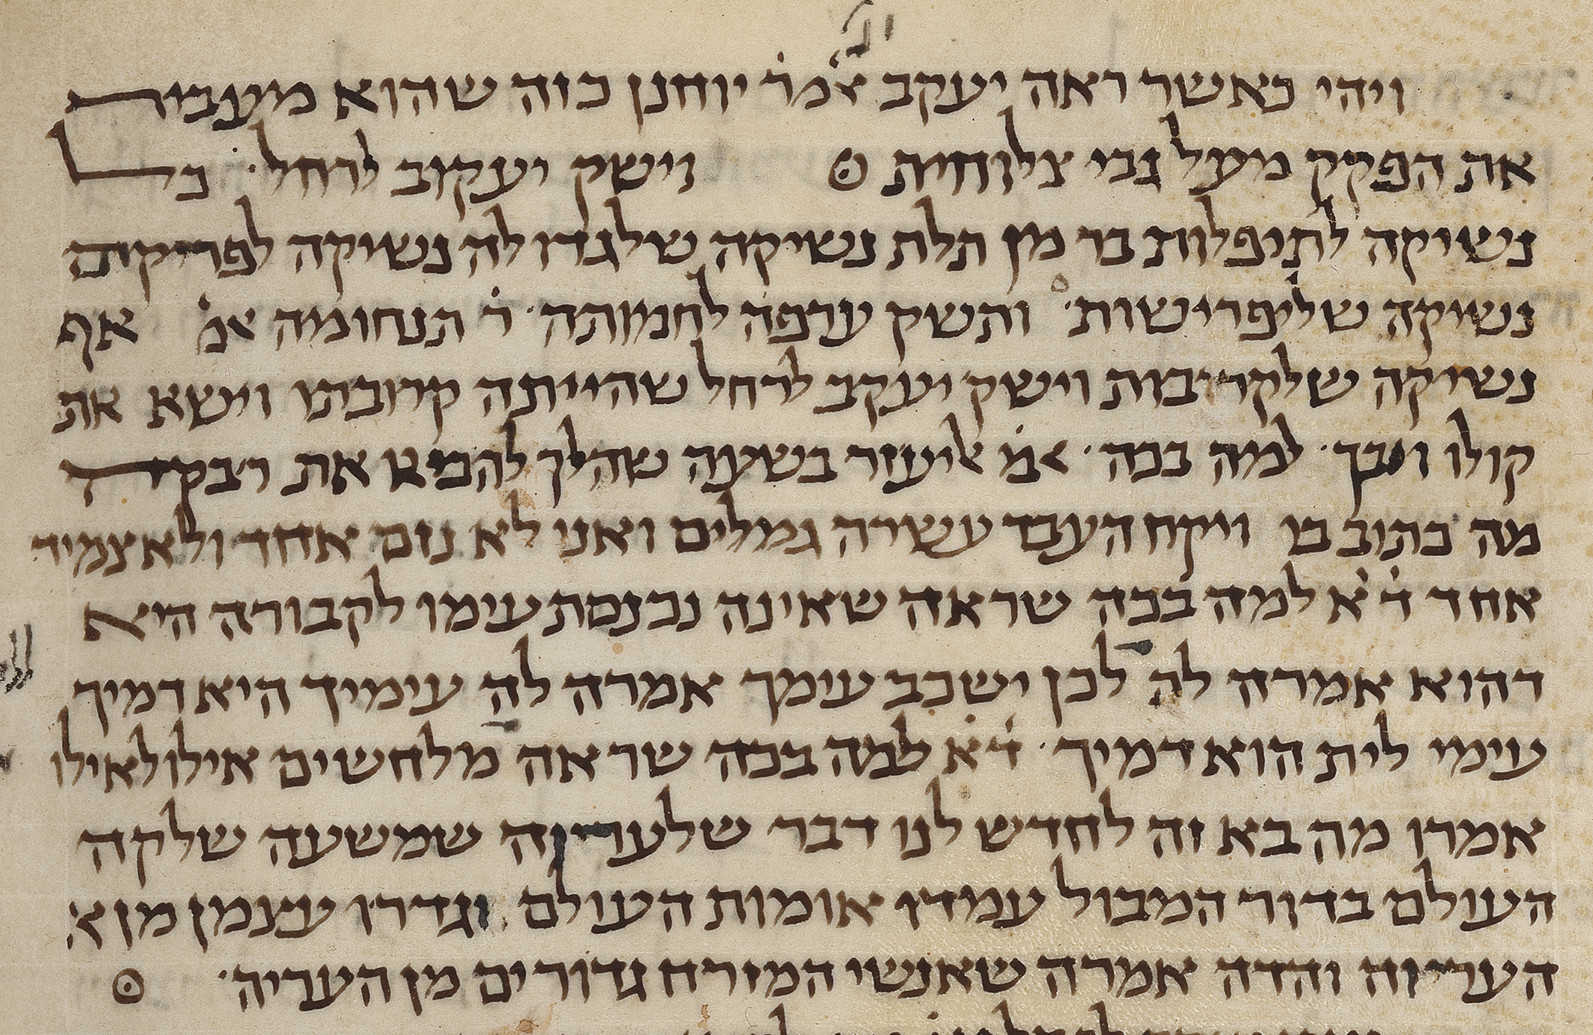 ויהי כאשר ראה יעקב אׄמרׄ יוחנן כזה שהוא מעביר
את הפקק מעל גבי צלוחית ⊙ וישק יעקוב לרחל׳ כל
נשיקה לתיפלות בר מן תלת נשיקה שלגדולה נשיקה לפריקים
נשיקה שלפרישות׳ ותשק ערפה לחמותה׳ ר׳ תנחומה אמ׳ אף
נשיקה שלקריבות וישק יעקב לרחל שהייתה קרובתו וישא את
קולו ויבך׳ למה בכה׳ אמ׳ ליעזר בשעה שהלך להביא את רבקה
מה כתוב בו ויקח העבד עשרה גמלים ואני לא נזם אחד ולא צמיד
אחד ד׳א׳ למה בכה שראה שאינה נכנסת עימו לקבורה היא
דהוא אמרה לה לכן ישכב עימך אמרה לה עימיך היא דמיך
עימי לית הוא דמיך׳ ד׳א׳ למה בכה שראה מלחשים אילו לאילו
אמרו מה בא זה לחדש לנו דבר שלעריוה שמשעה שלקה
העולם בדור המבול עמדו אומות העולם וגדרו עצמן מן
העריוה והדה אמרה שאנשי המזרח גדורים מן העריה׳ ⊙